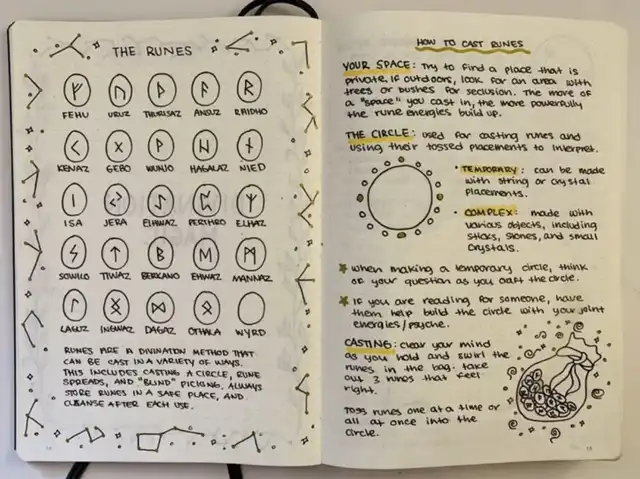 THE RUNES
FEHU URUZ THURISAZ ANSUZ RAIDHO
KENAZ GEBO WUNJO HAGALAZ NIED
ISA JERA EIHWAZ PERTHRO ELHAZ
SOWILO TIWAZ BERCANO EHWAZ MANNAZ
LAGUZ INGWAZ DAGAZ OTHALA WYRD
RUNES ARE A DIVINATION METHOD THAT
CAN BE CAST IN A VARIETY OF WAYS.
THIS INCLUDES CASTING A CIRCLE, RUNE
SPREADS, AND "BLIND" PICKING. ALWAYS
STORE RUNES IN A SAFE PLACE, AND
CLEANSE AFTER EACH USE.
HOW TO CAST RUNES
YOUR SPACE: Try to find a place that is
private. If outdoors, look for an area with
trees or bushes for seclusion. The more of
a "space" you cast in, the more powerfully
the rune energies build up.
THE CIRCLE: used for casting runes and
using their tossed placements to interpret.
• TEMPORARY: can be made
with string or crystal
placements.
• COMPLEX: made with
various objects, including
sticks, stones, and small
crystals.
★ When making a temporary circle, think
of your question as you craft the circle.
★ If you are reading for someone, have
them help build the circle with your joint
energies/psyche.
CASTING: clear your mind
as you hold and swirl the
runes in the bag. Take
out 3 runes that feel
right.
Toss runes one at a time or
all at once into the
circle.